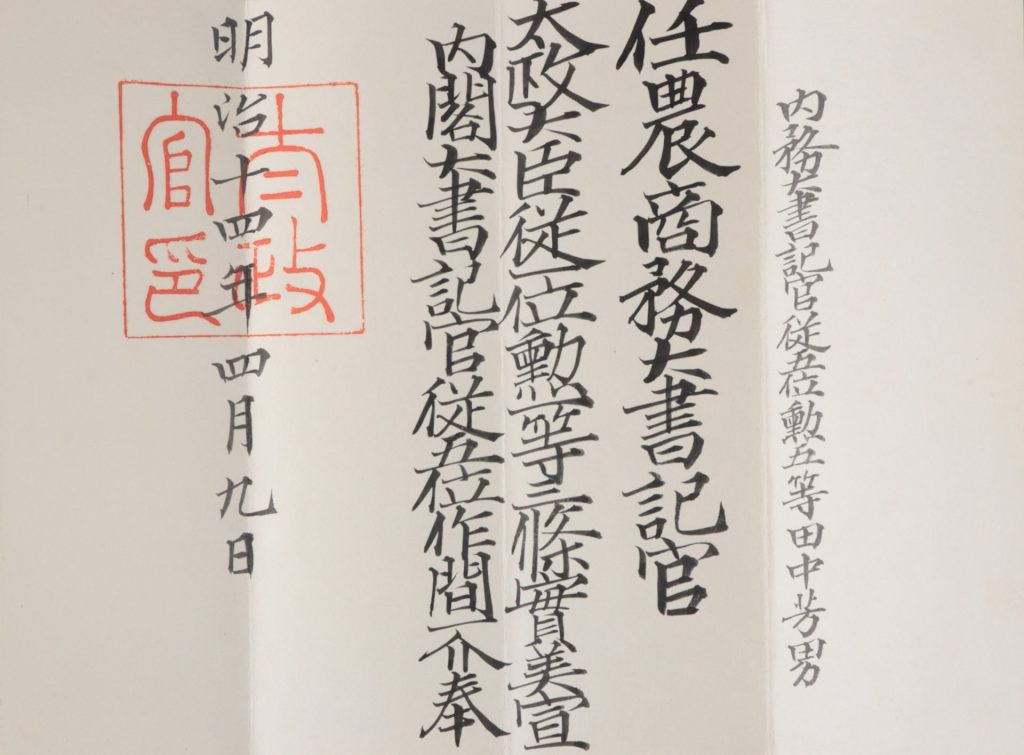 内務大書記官従五位勲五等田中芳男
任農商務大書記官
太政大臣従一位勲一等三條實美宣
内閣大書記官従五位作間一介奉
明治十四年四月九日
太政
官印